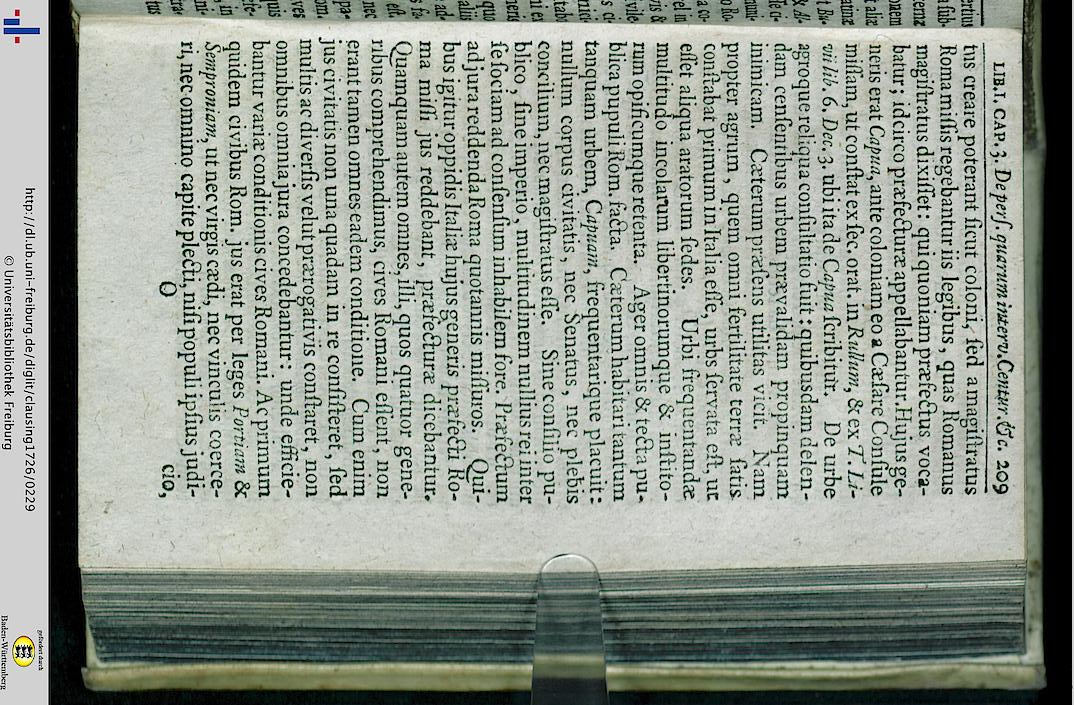 LIB. I. CAP. 3. De perſ. quarum interv. Centur &c. 209
tus creare poterant ſicut coloni, ſed a magiſtratus
Roma miſſis regebantur iis legibus, quas Romanus
magiſtratus dixiſſet: qui quoniam præfectus voca-
batur; idcirco præfecturæ appellabantur. Hujus ge-
neris erat Capua, ante coloniam eo a Cæſare Conſule
miſſam, ut conſtat ex ſec. orat. in Rullum, & ex T. Li-
vii lib. 6. Dec. 3. ubi ita de Capua ſcribitur. De urbe
agroque reliqua conſultatio fuit: quibusdam delen-
dam cenſentibus urbem prævalidam propinquam
inimicam. Cæterum præſens utilitas vicit. Nam
propter agrum, quem omni fertilitate terræ ſatis
conſtabat primum in Italia eſſe, urbs ſervata eſt, ut
eſſet aliqua aratorum ſedes. Urbi frequentandæ
multitudo incolarum libertinorumque & inſtito-
rum opificumque retenta. Ager omnis & tecta pu-
blica populi Rom. facta. Cæterum habitari tantum
tanquam urbem, Capuam, frequentarique placuit:
nullum corpus civitatis, nec Senatus, nec plebis
concilium, nec magiſtratus eſſe. Sine conſilio pu-
blico, ſine imperio, multitudinem nullius rei inter
ſe ſociam ad conſenſum inhabilem fore. Præfectum
ad jura reddenda Roma quotannis miſſuros. Qui-
bus igitur oppidis Italiæ hujus generis præfecti Ro-
ma miſſi jus reddebant, præfecturæ dicebantur.
Quamquam autem omnes, illi, quos quatuor gene-
ribus comprehendimus, cives Romani eſſent, non
erant tamen omnes eadem conditione. Cum enim
jus civitatis non una quadam in re conſiſteret, ſed
multis ac diverſis velut prærogativis conſtaret, non
omnibus omnia jura concedebantur: unde efficie-
bantur variæ conditionis cives Romani. Ac primum
quidem civibus Rom. jus erat per leges Portiam &
Semproniam, ut nec virgis cædi, nec vinculis coërce-
ri, nec omnino capite plecti, niſi populi ipſius judi-
O cio,
http://dl.ub.uni-freiburg.de/diglit/clausing1726/0229
© Universitätsbibliothek Freiburg
gefördert durch
Baden-Württemberg